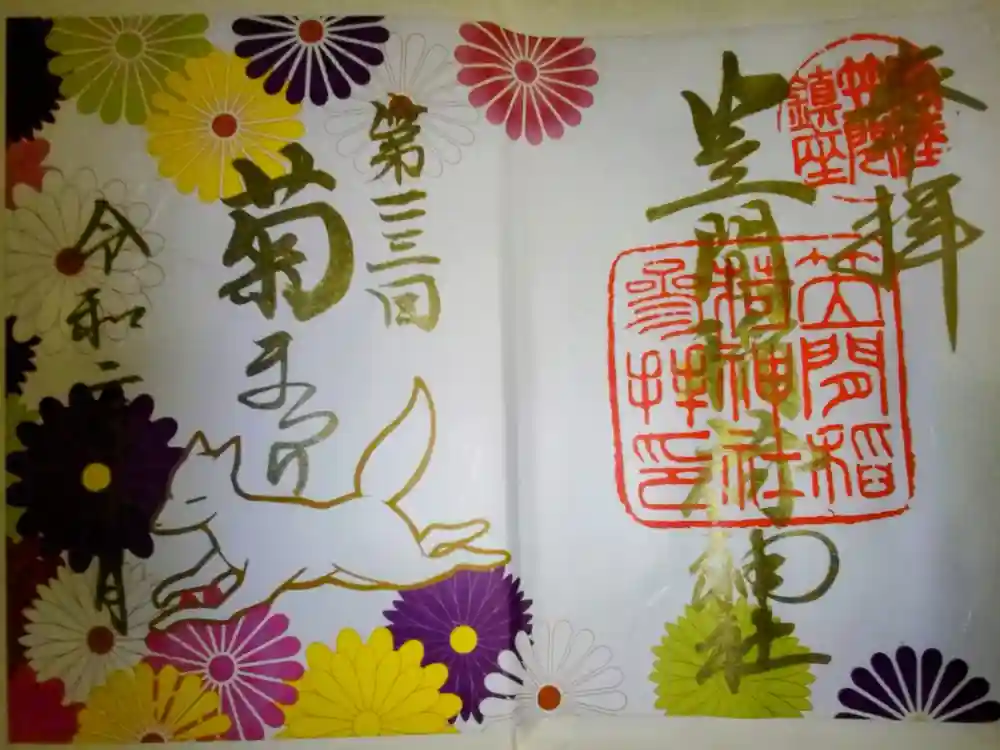 奉拝
笠間稲荷神社
笠間
鎮座
笠間稲
荷神社
参拝印
第一一二回
菊まつり
令和元
月